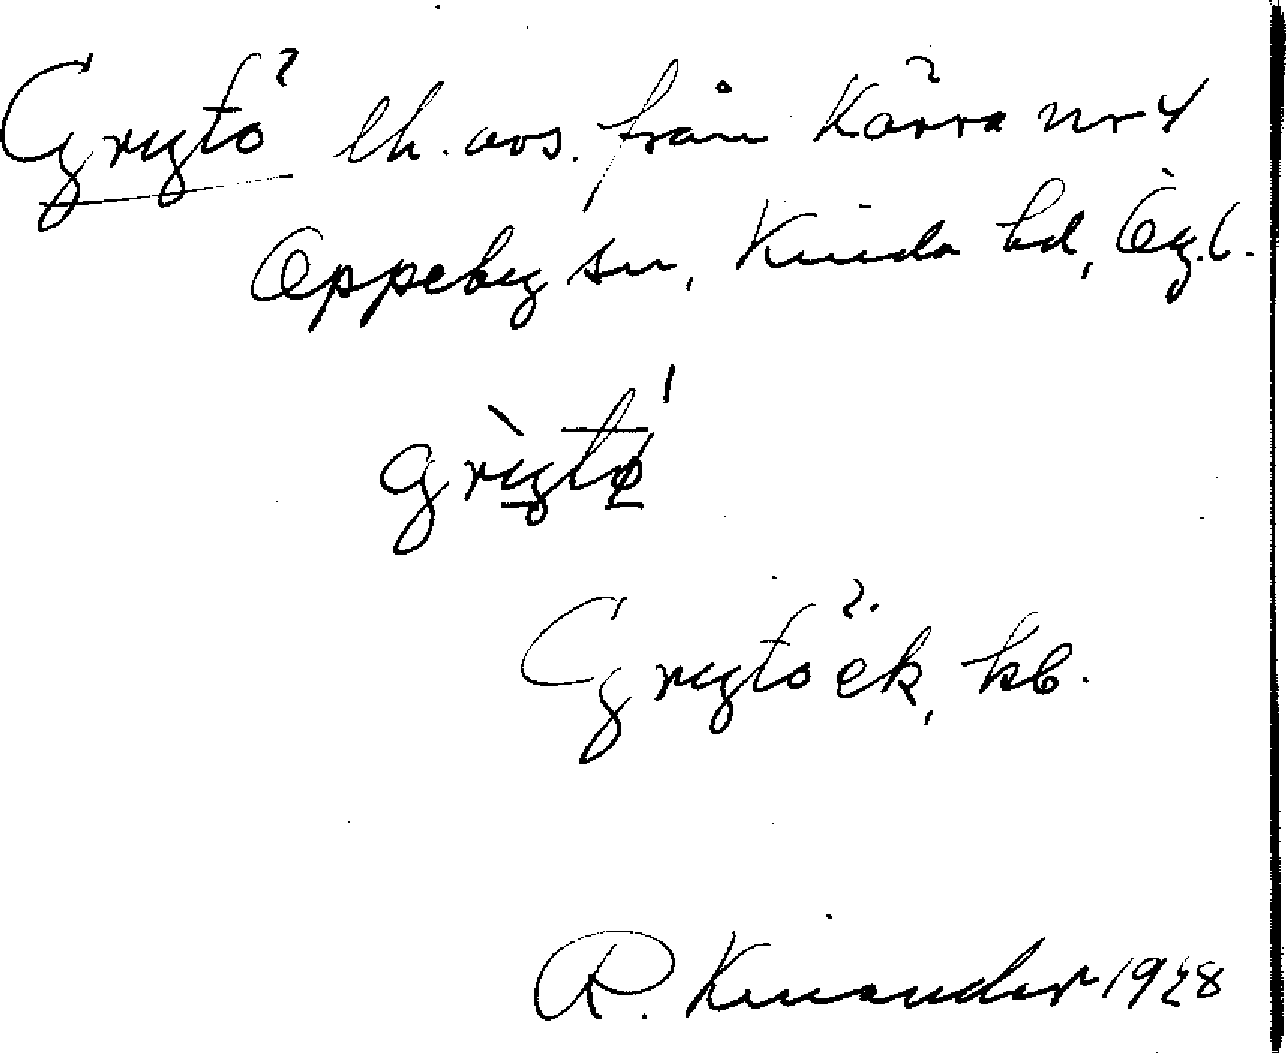 Grytö lh. avs. från Kärra nr 4
Oppeby sn, Kinda hd, Ög.l.
grỳtø̀
Grytö ek, kb.
R. Kinander 1928